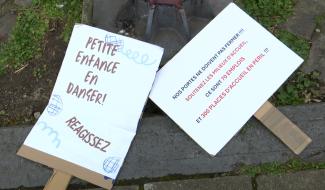 PETITE
ENFANCE
EN
DANGER!
REAGISSEZ
NOS PORTES NE DOIVENT PAS FERMER !!!
SOUTENEZ LES MILIEUX D'ACCUEIL
CE SONT 70 EMPLOIS
ET 300 PLACES D'ACCUEIL EN PERIL !!!